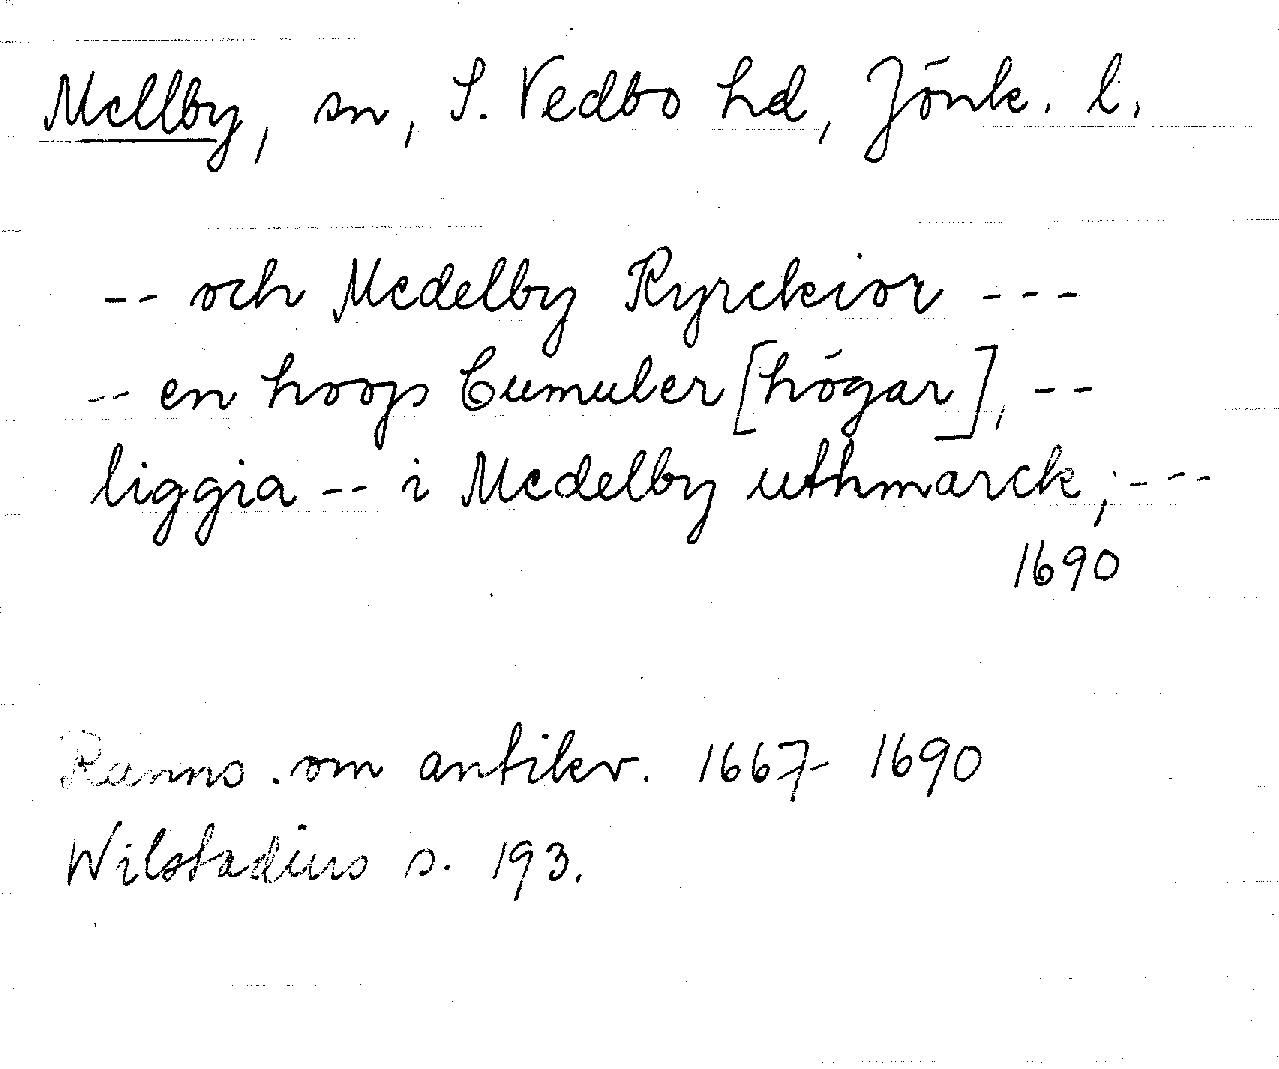 Mellby, sn, S. Vedbo hd, Jönk. l.
-- och Medelby Kyrckior ---
-- en hoop Cumuler [högar], --
liggia -- i Medelby uthmarck; ---
1690
Ranns. om antikv. 1667-1690
Wilstadius s. 193.